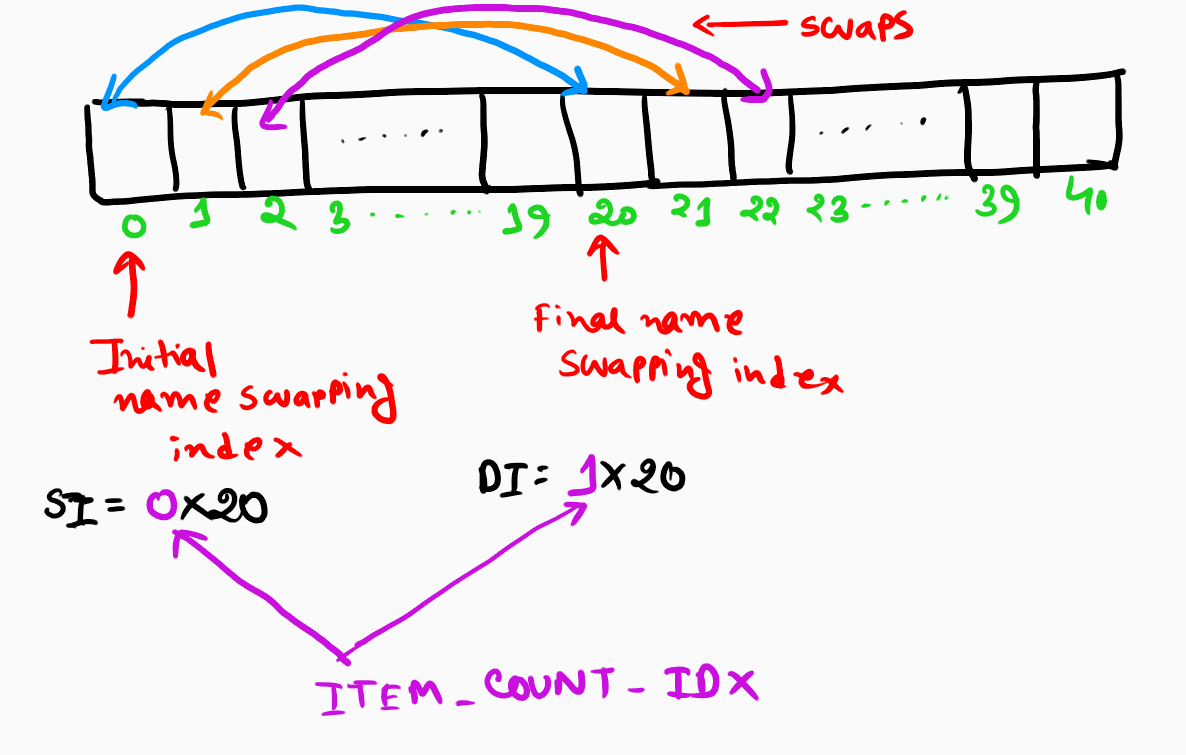 ← swaps
..... .....
0 1 2 3 ....... 19 20 21 22 23 ....... 39 40
Initial
name swapping
index
Final name
swapping index
SI = 0x20
DI = 1x20
ITEM_COUNT_IDX